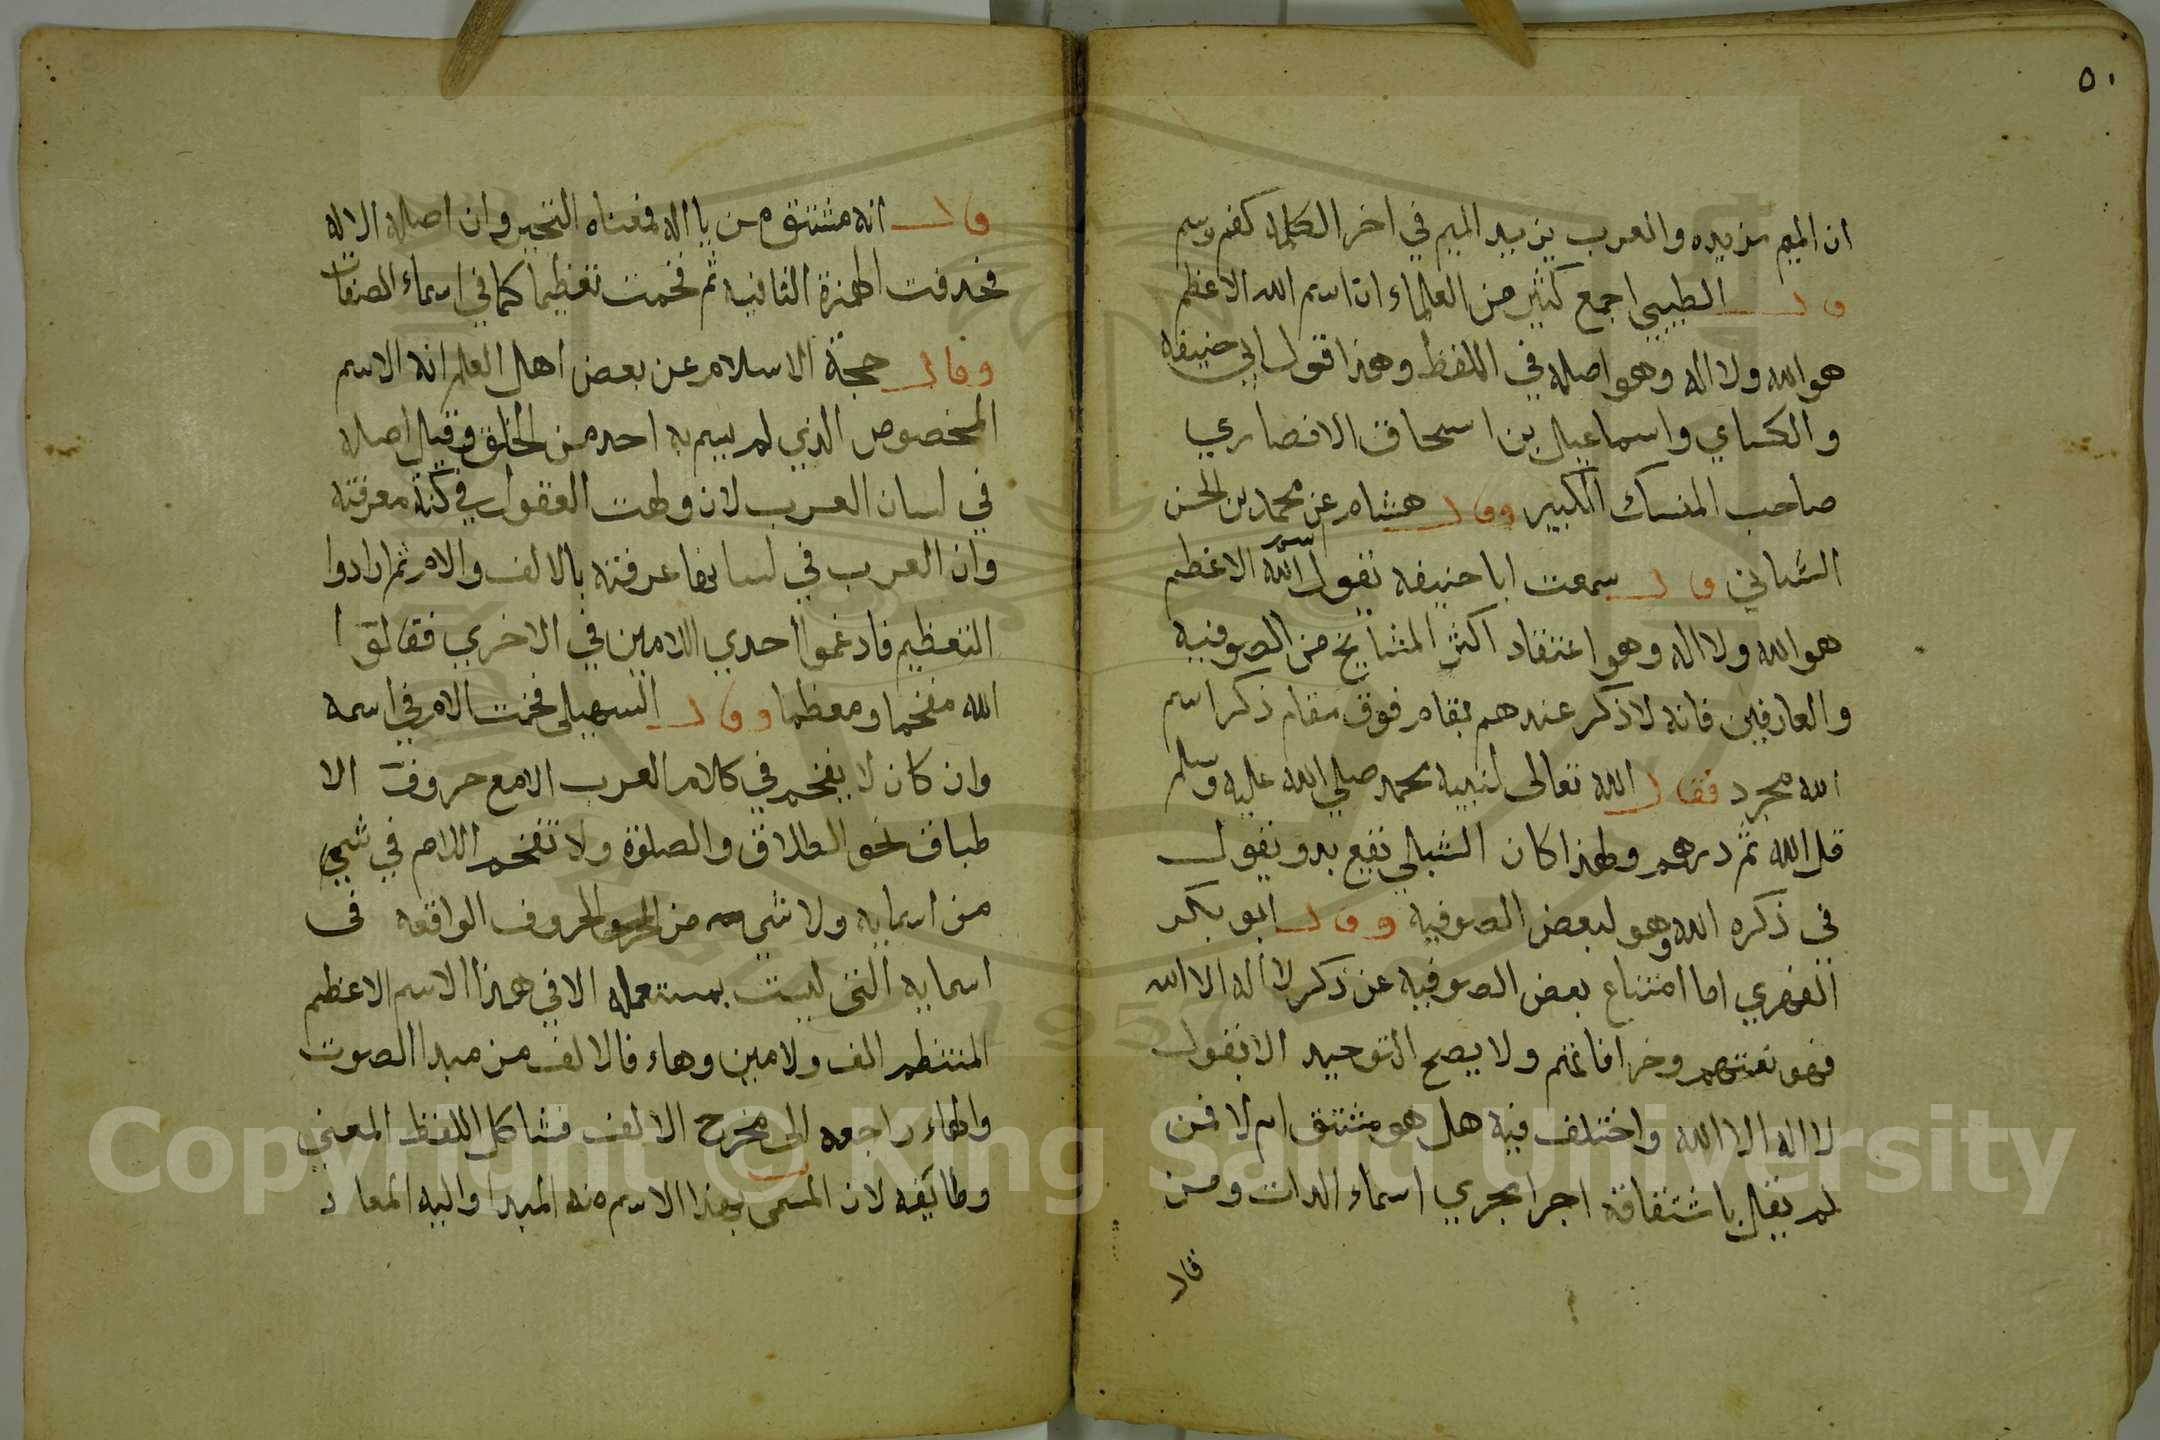 ٥٠
ان الميم مزيده والعرب يزيد الميم في اخر الكلمه كفم وسم
وقال الطيبي اجمع كثير من العلماء ان اسم الله الاعظم
هو الله ولا اله وهو اصله في اللفظ وهذا قول ابي حنيفه
والكساي واسماعيل بن اسحاق الانصاري
صاحب المنسك الكبير وقال هشام عن محمد بن الحسن
الشباني قال سمعت ابا حنيفه يقول اسم الله الاعظم
هو الله ولا اله وهو اعتقاد اكثر المشايخ من الصوفيه
والعارفين فانه لا ذكر عندهم بمقام فوق مقام ذكر اسم
الله مجرد فقال الله تعالى لنبيه محمد صلي الله عليه وسلم
قل الله ثم درهم ولهذا كان الشبلي يقول
في ذكره الله وهو لبعض الصوفيه وقال ابو بكر
الفهري اما امتناع بعض الصوفيه عن ذكر لا اله الا الله
فهو تعنتهم وخرافاتهم ولا يصح التوحيد الا بقول
لا اله الا الله واختلف فيه هل هو مشتق ام لا فمن
لم يقل باشتقاقه اجرا مجري اسماء الذات ومن
قال
قال انه مشتق من يا اله فمعناه التحير وان اصله الاله
فحدفت الهمزة الثانيه ثم فخمت تعظيما كما في اسماء الصفات
وقال حجة الاسلام عن بعض اهل العلم انه الاسم
المخصوص الذي لم يسم به احد من الخلق وقيل اصله
في لسان العرب لاه وولهت العقول في كنه معرفته
وان العرب في لسانها عرفته بالالف والام ثم ارادوا
التعظيم فادغموا احدي اللامين في الاخري فقالوا
الله مفخما ومعظما وقال السهيلى فخمت الام في اسمه
وان كان لا يفخم في كلام العرب الا مع حروف الا
طباق نحو الطلاق والصلوة ولا تفخم اللام في شيء
من اسمايه ولا شيء من الحروف الواقعه فى
اسمايه التى ليست بمستعمله الا في هذا الاسم الاعظم
المنتظم الف ولامين وهاء فالالف من مبدا الصوت
والهاء راجعه الى مخرج الالف فشاكل اللفظ المعنى
وطابقه لان المسمى بهذا الاسم منه المبدا واليه المعاد
Copyright © King Saud University
1957